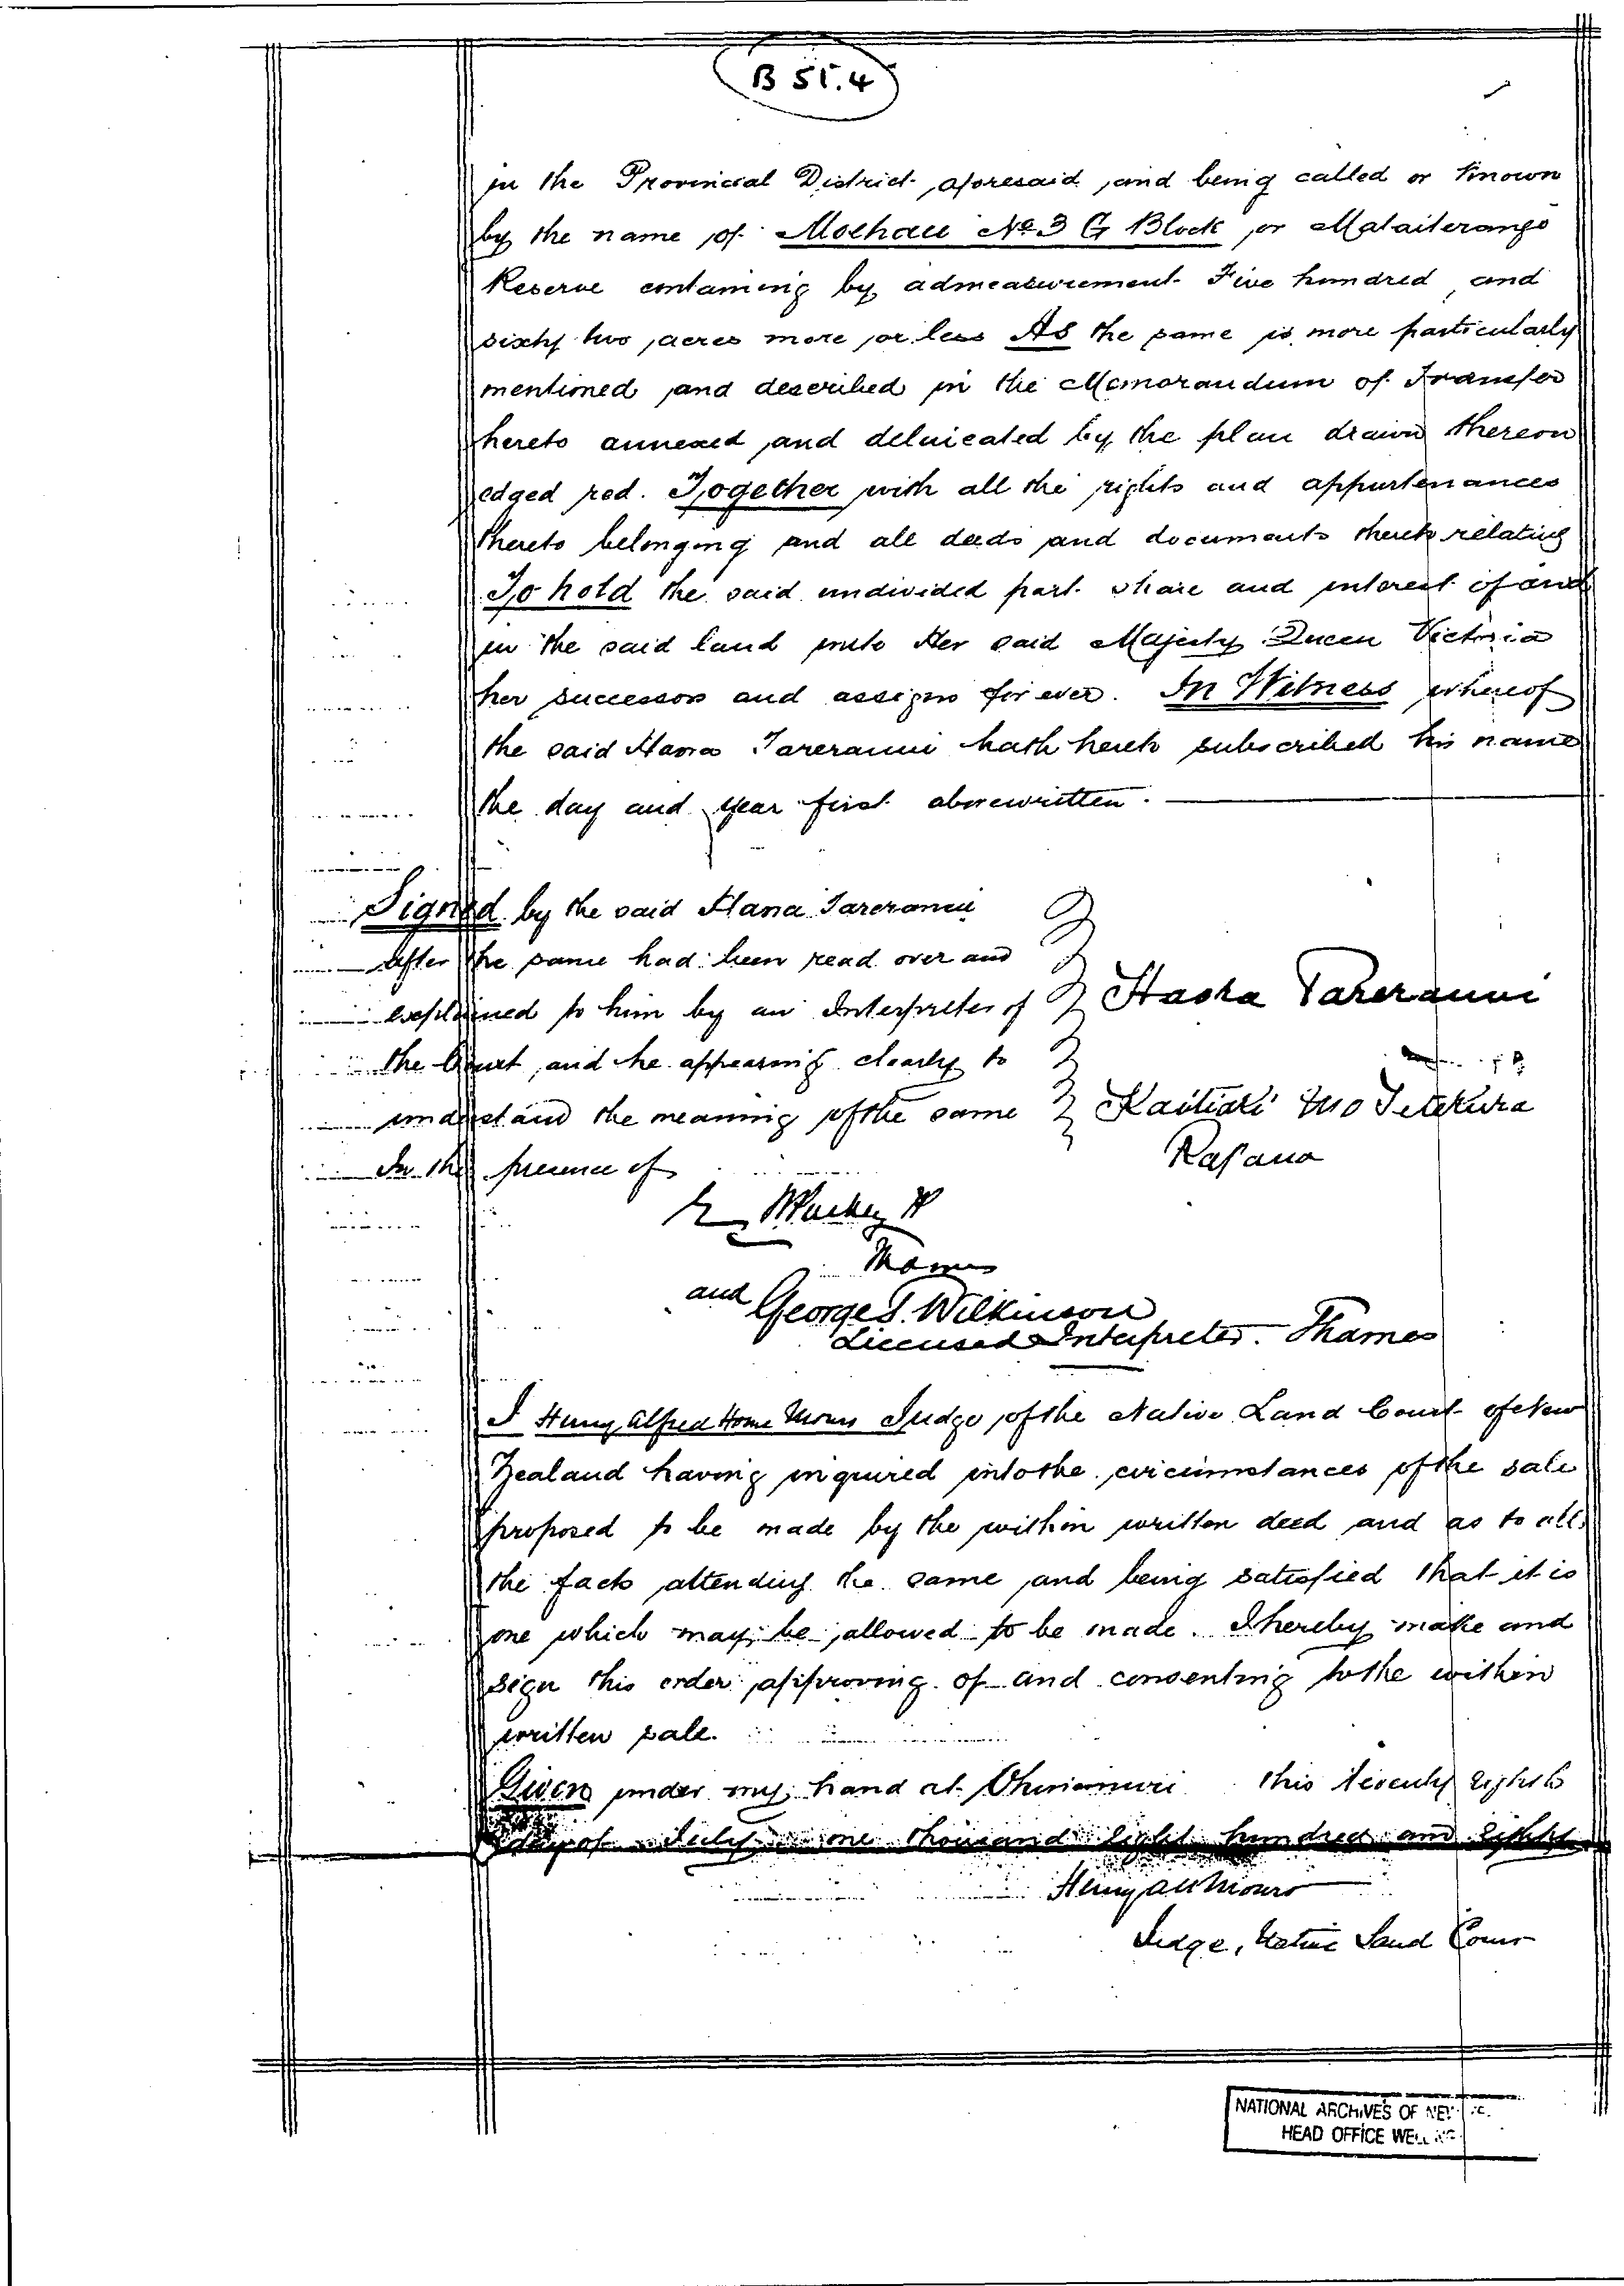 B 51.4
in the Provincial District aforesaid and being called or known
by the name of Moehau No 3 G Block or Mataiterango
Reserve containing by admeasurement Five hundred and
sixty two acres more or less As the same is more particularly
mentioned and described in the Memorandum of Transfer
hereto annexed and delineated by the plan drawn thereon
edged red. Together with all the rights and appurtenances
thereto belonging and all deeds and documents thereto relating
To hold the said undivided part share and interest of and
in the said land unto Her said Majesty Queen Victoria
her successors and assigns for ever. In Witness whereof
the said Haora Tareranui hath hereto subscribed his name
the day and year first abovewritten.
Signed by the said Haora Tareranui
After the same had been read over and
explained to him by an Interpreter of
the Court, and he appearing clearly to
understand the meaning of the same
In the presence of
Haora Tareranui
Kaitiaki mo Te
Rapana
Thames
and George T. Wilkinson
Licensed Interpreter. Thames
I Henry Alfred Home Monro Judge of the Native Land Court of New
Zealand having inquired into the circumstances of the sale
proposed to be made by the within written deed and as to all
the facts attending the same and being satisfied that it is
one which may be allowed to be made. I hereby make and
sign this order approving of and consenting to the within
written sale.
Given under my hand at Ohinemuri this twenty eighth
day of July one thousand eight hundred and eighty
Henry A H Monro
Judge, Native Land Court
NATIONAL ARCHIVES OF
HEAD OFFICE